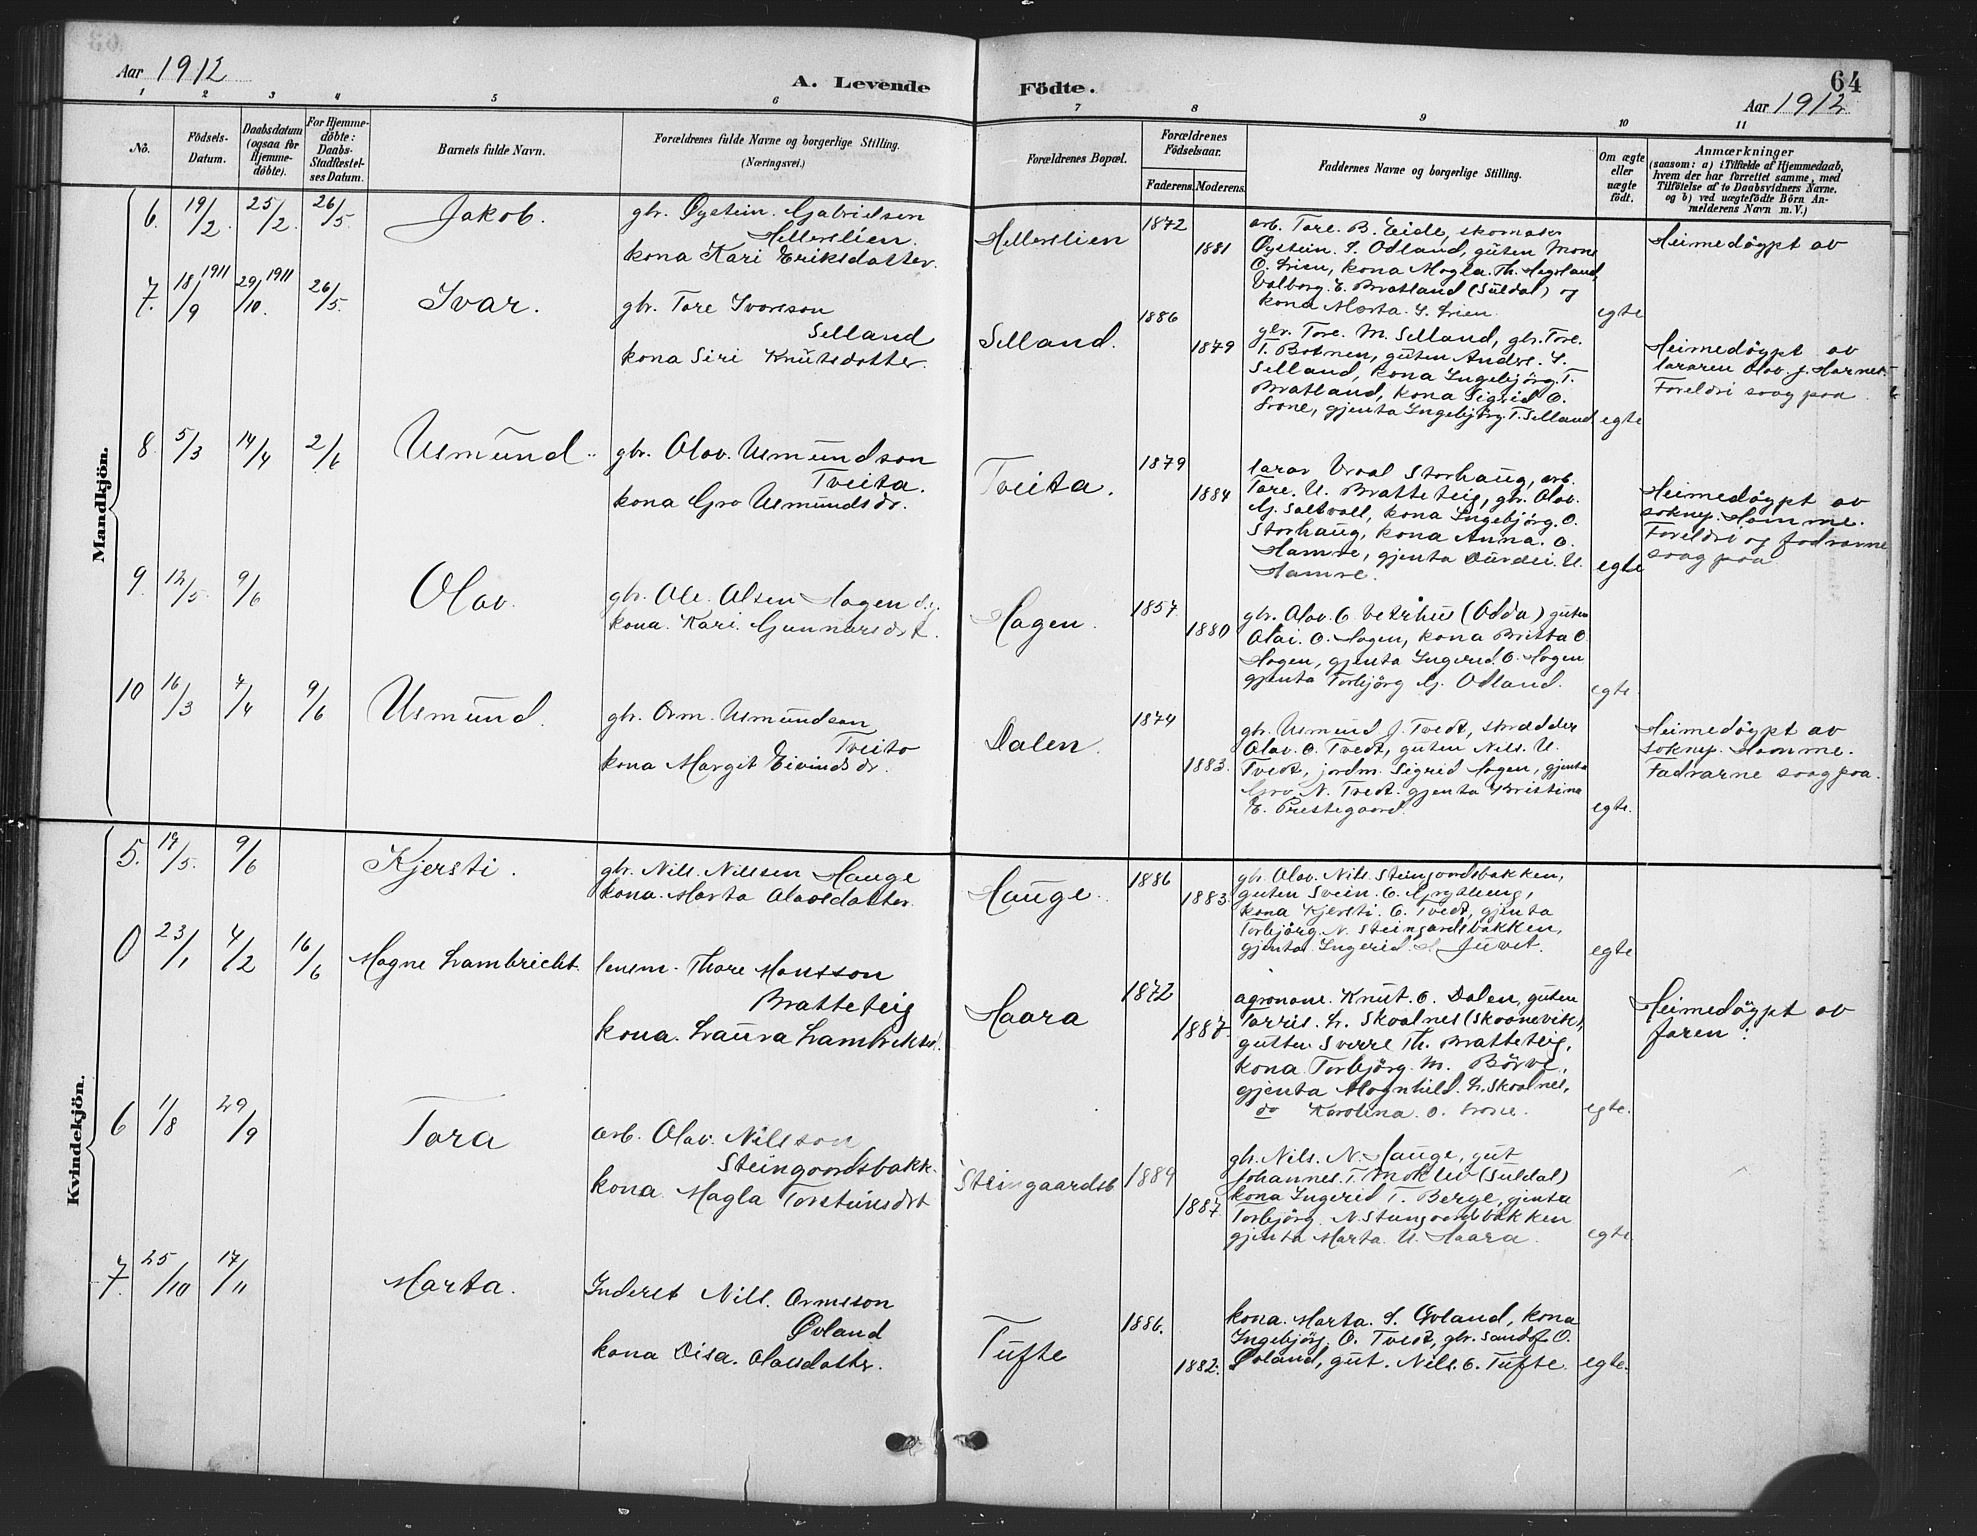 Aar 1912
A. Levende
Födte.
64
Aar 1912
1 2 3 4 5 6 7 8 9 10 11
Nô.
Födsels-
Datum.
Daabsdatum
(ogsaa for
Hjemme-
döbte).
For Hjemme-
döbte:
Daabs-
Stadfæstel-
ses Datum.
Barnets fulde Navn.
Forældrenes fulde Navne og borgerlige Stilling.
(Næringsvei.)
Forældrenes Bopæl.
Forældrenes
Födselsaar.
Faderens. Moderens.
Faddernes Navne og borgerlige Stilling.
Om ægte
eller
uægte
födt.
Anmærkninger
(saasom: a) i Tilfælde af Hjemmedaab,
hvem der har forrettet samme, med
Tilföielse af to Daabsvidners Navne.
og b) ved uægtefödte Börn An-
melderens Navn m.V.)
Mandkjön.
6. 19/2 25/2 26/5 Jakob.
gbr. Øystein Gabrielsen
Hellerslien.
kona Kari Eriksdatter.
Hellerslien
1872
1881
arb. Tore. B. Eide, skomaker
Øystein. S. Odland, guten Mons
O. Lien, kona Magla. Th. Hegeland,
Valborg. E. Bratland (Suldal) og
kona Marta. S. Lien
egte
Heimedöypt av
7. 18/9 1911 29/10 1911 26/5 Ivar.
gbr. Tore Ivarsson
Selland
kona Siri Knutsdotter.
Selland.
1886
1879
gbr. Tore. M. Selland, gbr. Tore.
T. Botnen, guten Andre. S.
Selland, kona Ingebjörg. T.
Bratland, kona Sigrid O.
Lrone, gjenta Ingebjörg. T. Selland
egte
Heimedöypt av
læraren Olav. J. Hamre.
Foreldri saag paa.
8. 5/3 14/4 2/6 Asmund.
gbr. Olav. Asmundson
Tveita.
kona Gro Asmundsdr.
Tveita.
1879
1884
lærar Vraal Storhaug, arb.
Tore. A. Bratteteig, gbr. Olav.
G. Saltvoll, kona Ingebjörg. O.
Storhaug, kona Anna. O.
Hamre, gjenta Durdei. A.
Hamre.
egte
Heimedöypt av
soknep. Hamme.
Foreldri og fadrarne
saag paa
9. 12/5. 9/6 Olav.
gbr. Ole Olsen Hagen og
kona. Kari. Gunnarsdt.
Hagen.
1857
1880
gbr. Olav. O. Vetrhus (Odda) guten
Olai. O. Hagen, kona Britta O
Hagen, gjenta Ingerid. O. Hagen
gjenta Torbjörg G. Odland.
egte.
10 16/3 7/4 9/6 Asmund.
gbr. Orm. Asmundson
Tveito
kona Margit Eivindsdr.
Dalen.
1874
1883.
gbr. Asmund J. Tvedt, skrædder
Olav. O. Tvedt, guten Nils. A.
Tvedt, jordm. Sigrid Hagen, gjenta
Gro. N. Tvedt. gjenta Kristina
E. Prestegaard.
egte.
Heimedöypt av
sokny. Hamme.
Fadrarne saag paa.
Kvindekjön.
5. 19/5. 9/6 Kjersti.
gbr. Nils. Nilssen Hauge
kona. Marta Olavsdatter.
Hauge.
1886
1883.
gbr. Olav. Nils. Steingardsbakken,
guten Svein. O. Grytleng,
kona Kjersti. O. Tvedt, gjenta
Torbjörg. N. Steingardsbakken,
gjenta Ingerid. H Juvet.
egte
0 23/1 4/2 16/6 Magne Lambricht.
lensm. Thore Monsson
Bratteteig
kona. Laura Lambriktsd.
Haara
1872
1887.
agronom. Knut. O. Dalen, guten
Torris. L. Skoalnes (Skoanevik),
gutten Sverre Th. Bratteteig,
kona Torbjörg. M. Börve,
gjenta Magnhild. L. Skoalnes,
do Karolina. O. Lrone.
egte.
Heimedöypt av
faren.
6 1/8 29/9 Tora
arb. Olav. Nilsson
Steingaardsbakk.
kona Magla Torsteinsdt
Steingaardsb
1889
1887.
gbr. Nils. N. Hauge, gut
Johannes. T. Moklev (Suldal)
kona Ingerid T. Berge, gjenta
Torbjörg. N. Steingaardsbakken
gjenta Marta. A. Haara.
egte.
7. 25/10 17/11 Marta.
Inderst Nils. Ormsson
Øvland
kona Disa. Olavsdotter.
Tufte
1886.
1882.
kona. Marta. S. Øvland, kona
Ingebjörg. O. Tvedt, gbr. Sandof O.
Øvland, gut. Nils. O. Tufte.
egte.